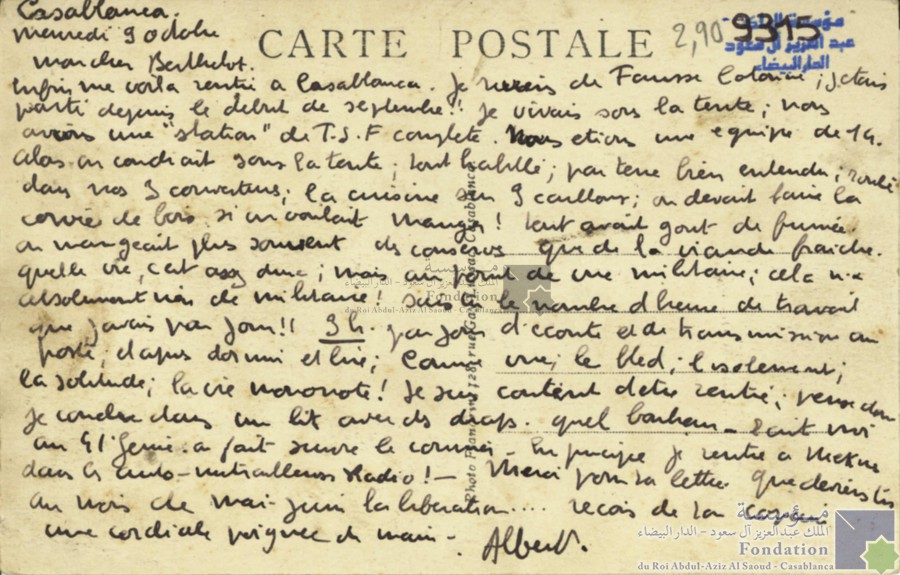 Casablanca.
mercredi 9 octobre
CARTE POSTALE
2,90
9315
مؤسسة الملك
عبد العزيز آل سعود
الدار البيضاء
mon cher Berthelot.
Enfin me voila rentré a Casablanca. Je reviens de Fausse Colonne ; j'etais
parti depuis le debut de septembre!! Je vivais sous la tente ; nous
avions une "station" de T.S.F complete. Nous etions une equipe de 14.
alors on couchait sous la tente ; tout habillé ; par terre bien entendu ; roulé
dans nos 3 couvertures ; la cuisine sur 3 cailloux ; on devait faire la
corvée de bois si on voulait manger ! tout avait gout de fumée
on mangeait plus souvent des conserves que de la viande fraiche.
quelle vie, c'est assez dure ; mais au point de vue militaire ; cela n'a
absolument rien de militaire ! le nombre d'heure de travail
que j'avais par jour!! 3 h. par jour d'ecoute et de transmission au
poste, et apus dormir et lire ; comme vue ; le bled ; l'isolement ;
la solitude ; la vie monotone ! Je suis content d'etre rentré ; pense donc
je couche dans un lit avec des draps. quel bonheur _ Ecrit moi
au 41e Genie. a fait suivre le courrier - En principe je rentre a Mekne
dans les auto-mitrailleuses Radio ! _ Merci pour ta lettre. Que deviens tu
au mois de mai-juin la liberation .... recois de ton copain
une cordiale poignée de main -
Albert.
Photo Flandrin, 128, rue Gay-Lussac, Casablanca
مؤسسة
الملك عبد العزيز آل سعود - الدار البيضاء
Fondation
du Roi Abdul-Aziz Al Saoud - Casablanca
مؤسسة
الملك عبد العزيز آل سعود - الدار البيضاء
Fondation
du Roi Abdul-Aziz Al Saoud - Casablanca